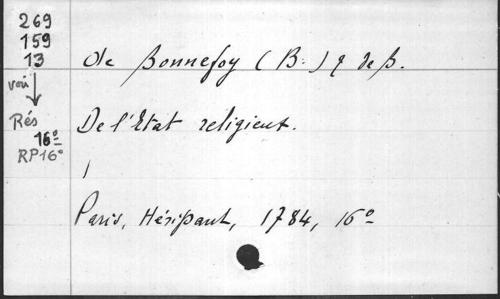 269
159
13
voir
Rés
16°
RP16°
de Bonnefoy (B.) & de B.
De l'Etat religieux.
/
Paris, Hérissant, 1784, 16°